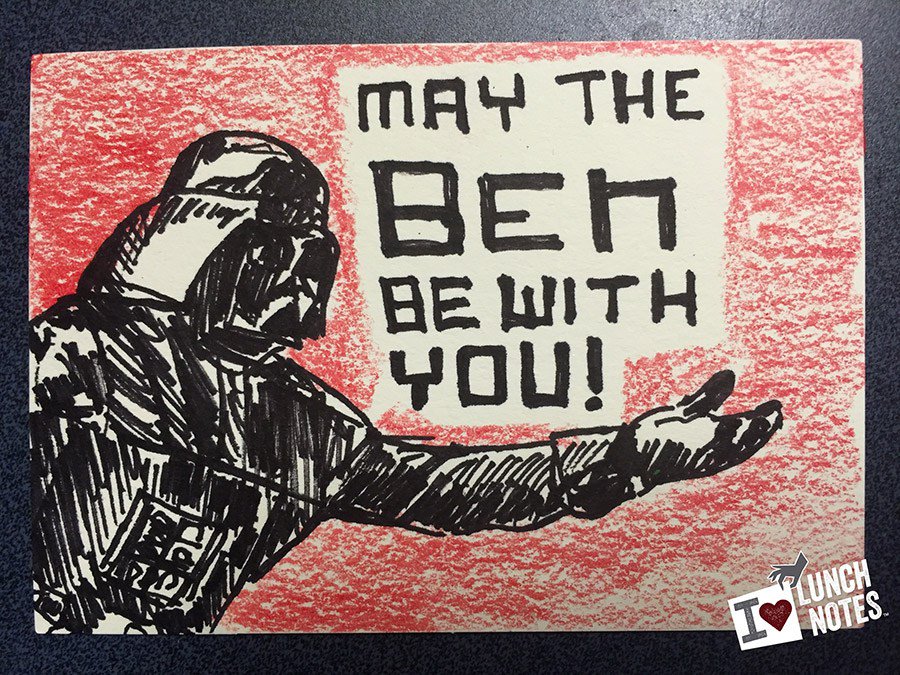 MAY THE
BEN
BE WITH
YOU!
I ♥ LUNCH
NOTES™